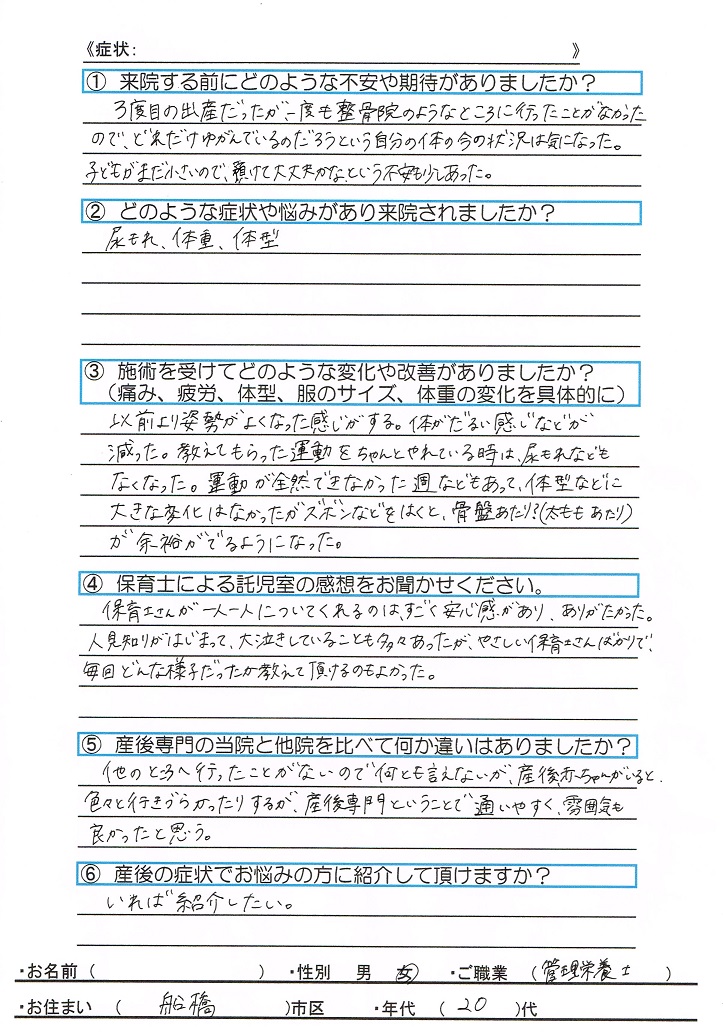 《症状:　　　　　　　　　　　　　　　》
① 来院する前にどのような不安や期待がありましたか？
3度目の出産だったが一度も整骨院のようなところに行ったことがなかった
ので、どれだけゆがんでいるのだろうという自分の体の今の状況は気になった。
子どもがまだ小さいので、預けて大丈夫かな、という不安も少しあった。
② どのような症状や悩みがあり来院されましたか？
尿もれ、体重、体型
③ 施術を受けてどのような変化や改善がありましたか？
（痛み、疲労、体型、服のサイズ、体重の変化を具体的に）
以前より姿勢がよくなった感じがする。体がだるい感じなどが
減った。教えてもらった運動をちゃんとやれている時は、尿もれなども
なくなった。運動が全然できなかった週などもあって、体型などに
大きな変化はなかったがズボンなどをはくと、骨盤あたり？(太ももあたり)
が余裕がでるようになった。
④ 保育士による託児室の感想をお聞かせください。
保育士さんが一人一人についてくれるのは、すごく安心感があり、ありがたかった。
人見知りがはじまって、大泣きしていることも多々あったが、やさしい保育士さんばかりで、
毎回どんな様子だったか教えて頂けるのもよかった。
⑤ 産後専門の当院と他院を比べて何か違いはありましたか？
他のところへ行ったことがないので何とも言えないが、産後、赤ちゃんがいると、
色々と行きづらかったりするが、産後専門ということで通いやすく、雰囲気も
良かったと思う。
⑥ 産後の症状でお悩みの方に紹介して頂けますか？
いれば紹介したい。
・お名前（　　　　　　　　　）・性別　男　女　・ご職業　（管理栄養士　）
・お住まい　（　船橋　）市区　・年代（　20　）代